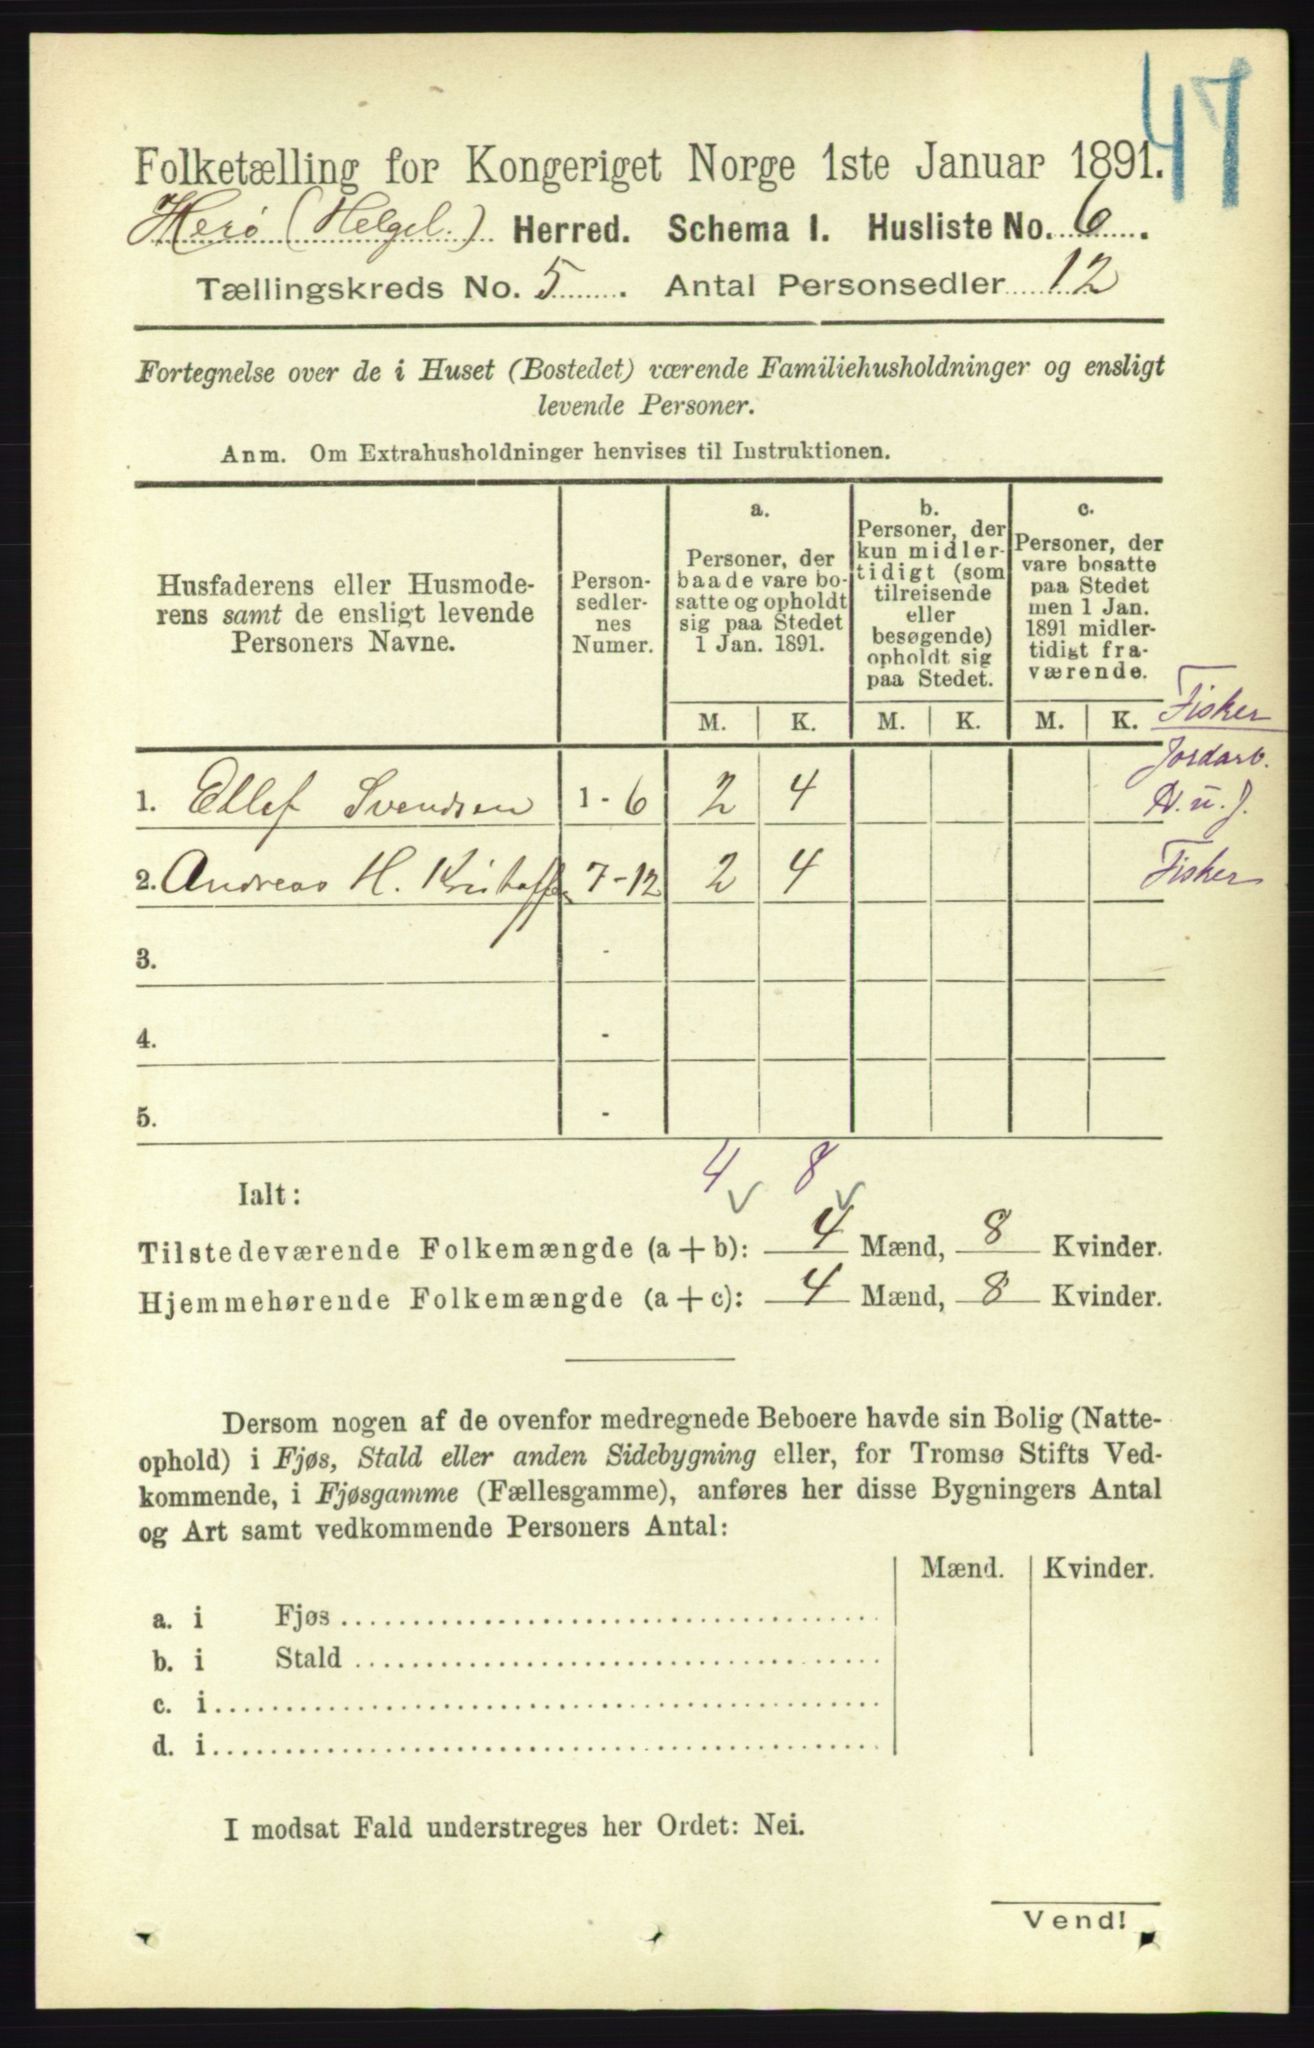 47
Folketælling for Kongeriget Norge 1ste Januar 1891.
Herø (Helgel.) Herred. Schema I. Husliste No. 6.
Tællingskreds No. 5. Antal Personsedler 12
Fortegnelse over de i Huset (Bostedet) værende Familiehusholdninger og ensligt
levende Personer.
Anm. Om Extrahusholdninger henvises til Instruktionen.
Husfaderens eller Husmode-
rens samt de ensligt levende
Personers Navne.
Person-
sedler-
nes
Numer.
a.
Personer, der
baade vare bo-
satte og opholdt
sig paa Stedet
1 Jan. 1891.
b.
Personer, der
kun midler-
tidigt (som
tilreisende
eller
besøgende)
opholdt sig
paa Stedet.
c.
Personer, der
vare bosatte
paa Stedet
men 1 Jan.
1891 midler-
tidigt fra-
værende.
M. K. M. K. M. K.
Fisker
Jordarb.
1. Ellef Svendsen 1 - 6 2 4
2. Andreas H. 7 - 12 2 4 Fisker
3. -
4. -
5. -
4 8
Ialt:
Tilstedeværende Folkemængde (a + b): 4 Mænd, 8 Kvinder.
Hjemmehørende Folkemængde (a + c): 4 Mænd, 8 Kvinder.
Dersom nogen af de ovenfor medregnede Beboere havde sin Bolig (Natte-
ophold) i Fjøs, Stald eller anden Sidebygning eller, for Tromsø Stifts Ved-
kommende, i Fjøsgamme (Fællesgamme), anføres her disse Bygningers Antal
og Art samt vedkommende Personers Antal:
Mænd. Kvinder.
a. i Fjøs
b. i Stald
c. i
d. i
I modsat Fald understreges her Ordet: Nei.
Vend!